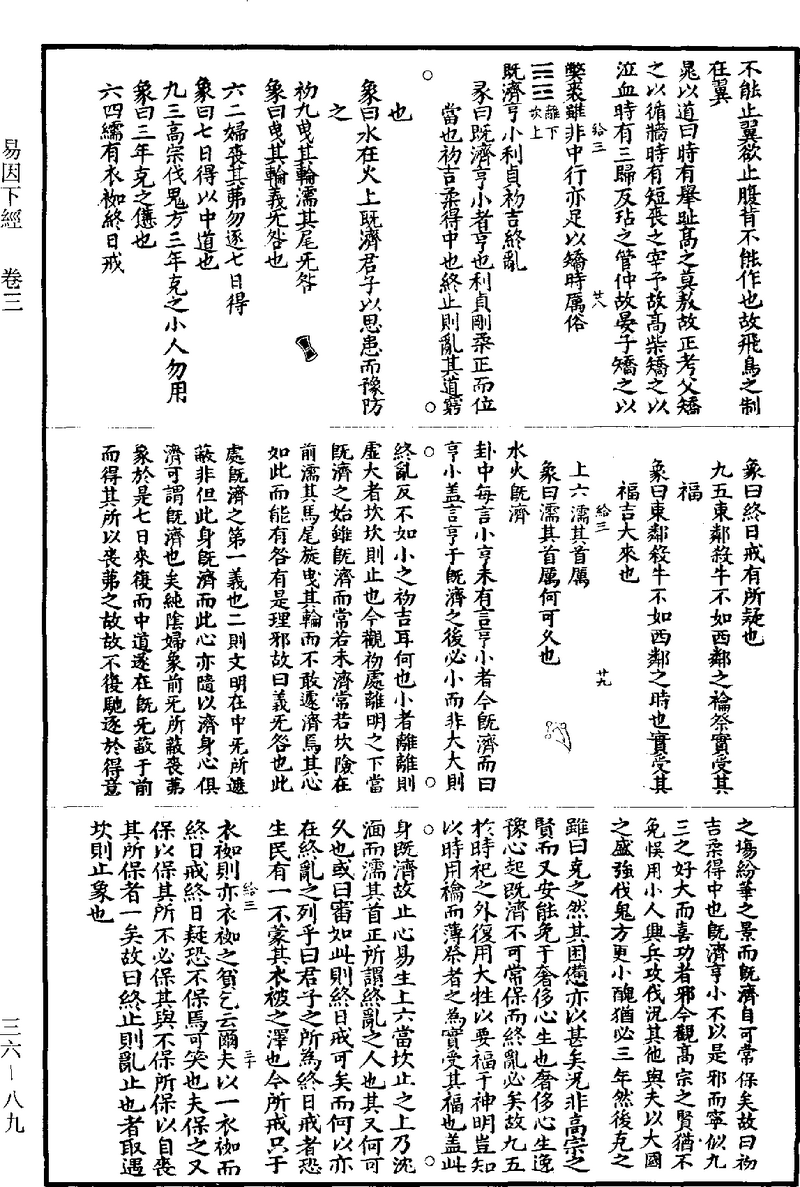 不能止翼欲止腹背不能作也故飛鳥之制
在翼
晁以道曰時有舉趾高之莫敖故正考父矯
之以循牆時有短喪之宰予故高柴矯之以
泣血時有三歸反玷之管仲故晏子矯之以
弊裘雖非中行亦足以矯時厲俗
給三
廿八
離下
坎上
既濟亨小利貞初吉終亂
彖曰既濟亨小者亨也利貞剛柔正而位
當也初吉柔得中也終止則亂其道窮
也
象曰水在火上既濟君子以思患而豫防
之
初九曳其輪濡其尾旡咎
象曰曳其輪義旡咎也
六二婦喪其茀勿逐七日得
象曰七日得以中道也
九三高宗伐鬼方三年克之小人勿用
象曰三年克之憊也
六四繻有衣袽終日戒
象曰終日戒有所疑也
九五東鄰殺牛不如西鄰之禴祭實受其
福
象曰東鄰殺牛不如西鄰之時也實受其
福吉大來也
給三
廿九
上六濡其首厲
象曰濡其首厲何可久也
水火既濟
卦中每言小亨未有言亨小者今既濟而曰
亨小蓋言亨于既濟之後必小而非大大則
終亂反不如小之初吉耳何也小者離離則
虛大者坎坎則止也今觀初處離明之下當
既濟之始雖既濟而常若未濟常若坎險在
前濡其馬尾旋曳其輪而不敢遽濟焉其心
如此而能有咎有是理邪故曰義旡咎也此
處既濟之第一義也二則文明在中旡所遮
蔽非但此身既濟而此心亦隨以濟身心俱
濟可謂既濟也矣純陰婦象前旡所蔽喪茀
象於是七日來復而中道遂在既旡蔽于前
而得其所以喪茀之故故不復馳逐於得意
之場紛華之景而既濟自可常保矣故曰初
吉柔得中也既濟亨小不以是邪而寧似九
三之好大而喜功者邪今觀高宗之賢猶不
免悞用小人興兵攻伐況其他與夫以大國
之盛強伐鬼方更小醜猶必三年然後克之
雖曰克之然其困憊亦以甚矣況非高宗之
賢而又安能免于奢侈心生也奢侈心生逸
豫心起既濟不可常保而終亂必矣故九五
於時祀之外復用大牲以要福于神明豈知
以時用禴而薄祭者之為實受其福也蓋此
身既濟故止心易生上六當坎止之上乃沈
湎而濡其首正所謂終亂之人也其又何可
久也或曰審如此則終日戒可矣而何以亦
在終亂之列乎曰君子之所為終日戒者恐
生民有一不蒙其衣被之澤也今所戒只于
給三
三十
衣袽則亦衣袽之貧乞云爾夫以一衣袽而
終日戒終日疑恐不保焉可笑也夫保之又
保以保其所不必保其與不保所保以自喪
其所保者一矣故曰終止則亂止也者取遇
坎則止象也
易因下經 卷三
三六—八九